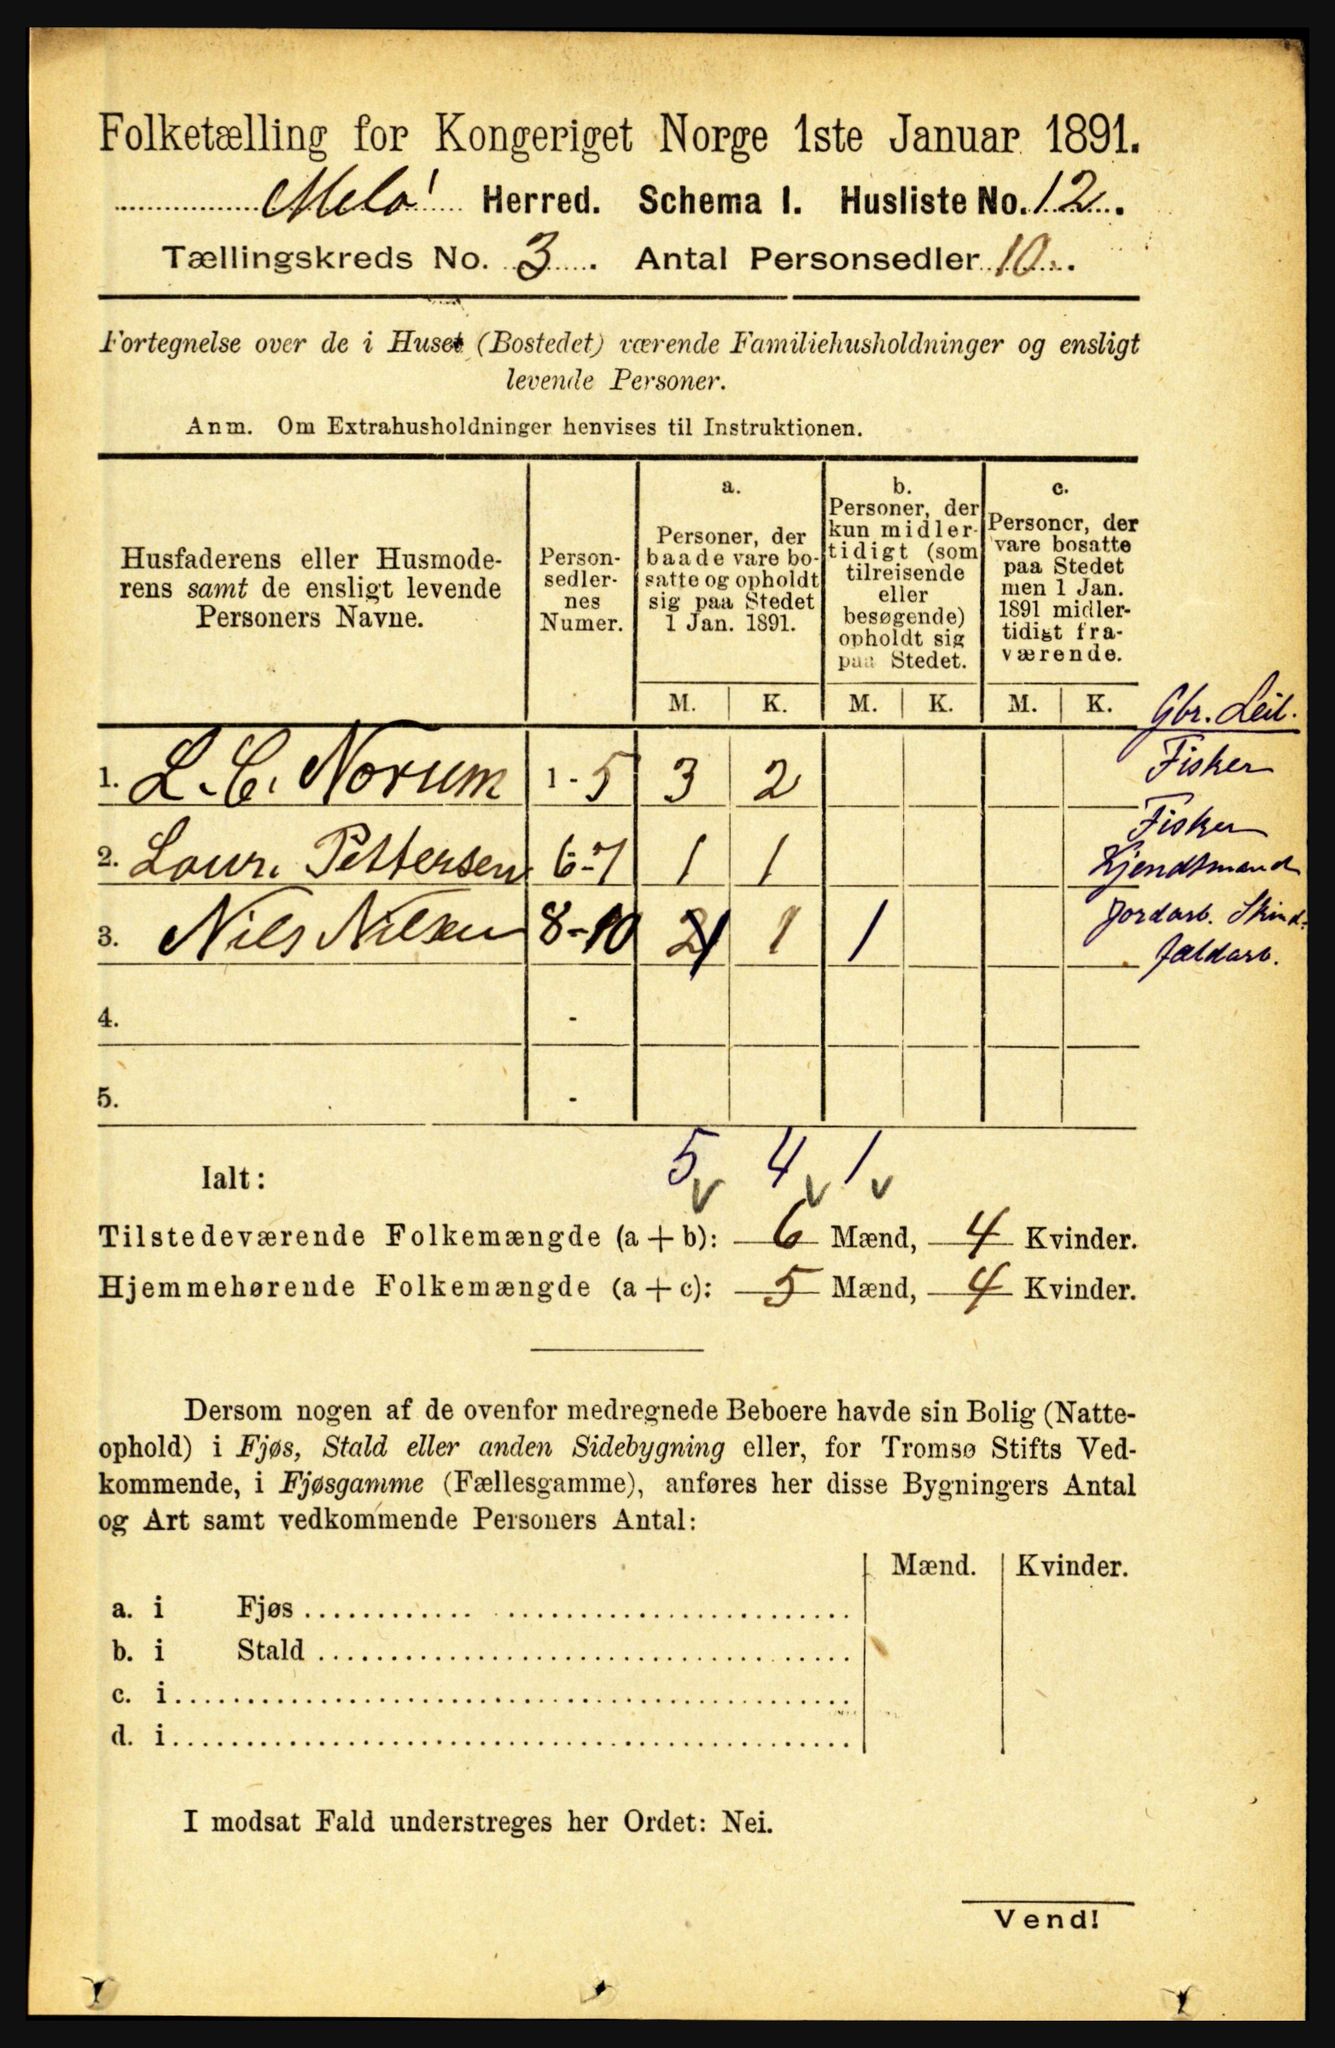 Folketælling for Kongeriget Norge 1ste Januar 1891.
Melø Herred. Schema I. Husliste No. 12.
Tællingskreds No. 3. Antal Personsedler 10.
Fortegnelse over de i Huset (Bostedet) værende Familiehusholdninger og ensligt
levende Personer.
Anm. Om Extrahusholdninger henvises til Instruktionen.
Husfaderens eller Husmode-
rens samt de ensligt levende
Personers Navne.
Person-
sedler-
nes
Numer.
a.
Personer, der
baade vare bo-
satte og opholdt
sig paa Stedet
1 Jan. 1891.
b.
Personer, der
kun midler-
tidigt (som
tilreisende
eller
besøgende)
opholdt sig
paa Stedet.
c.
Personer, der
vare bosatte
paa Stedet
men 1 Jan.
1891 midler-
tidigt fra-
værende.
M. K. M. K. M. K.
Gbr. Leil.
1. L. C. Norum 1-5 3 2 Fisker
Fisker
2. Laur. Pettersen 6-7 1 1
3. Nils Nilsen 8-10 1 1 1
Jordarb.
4. -
5. -
Ialt: 5 4 1
Tilstedeværende Folkemængde (a + b): 6 Mænd, 4 Kvinder.
Hjemmehørende Folkemængde (a + c): 5 Mænd, 4 Kvinder.
Dersom nogen af de ovenfor medregnede Beboere havde sin Bolig (Natte-
ophold) i Fjøs, Stald eller anden Sidebygning eller, for Tromsø Stifts Ved-
kommende, i Fjøsgamme (Fællesgamme), anføres her disse Bygningers Antal
og Art samt vedkommende Personers Antal:
Mænd. Kvinder.
a. i Fjøs
b. i Stald
c. i
d. i
I modsat Fald understreges her Ordet: Nei.
Vend!